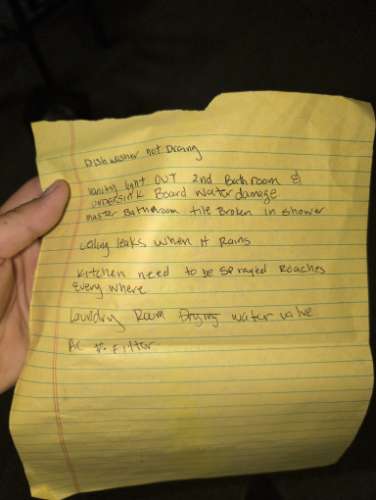 Dishwasher not Draing
Vanity light OUT 2nd Bathroom &
undersink Board water damage
master Bathroom tile Broken in shower
Ceiling leaks when it Rains
Kitchen need to be sprayed Roaches
Every where
Laundry Room Drying water valve
AC Filter